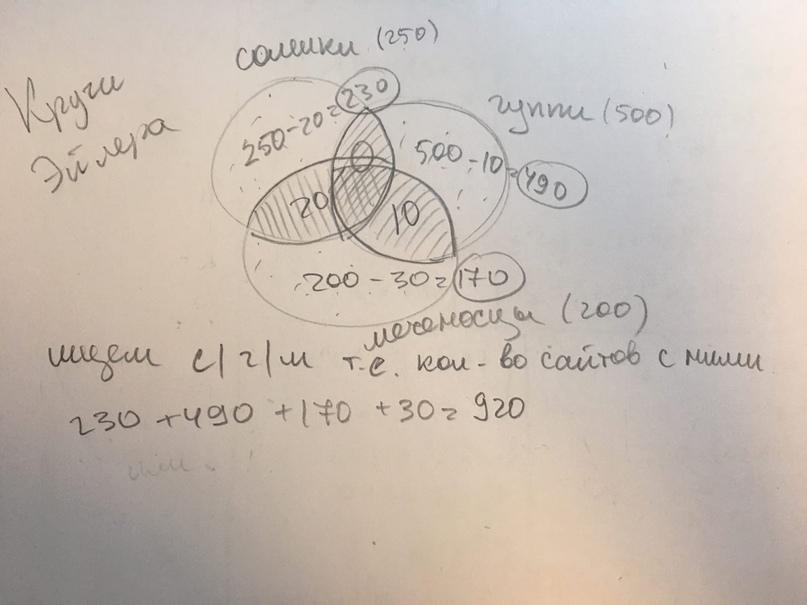 Круги
Эйлера
сомики (250)
гуппи (500)
250-20=230
0
500-10=490
20
10
200-30=170
меченосцы (200)
ищем с/г/м т.е. кол-во сайтов с ними
230+490+170+30=920